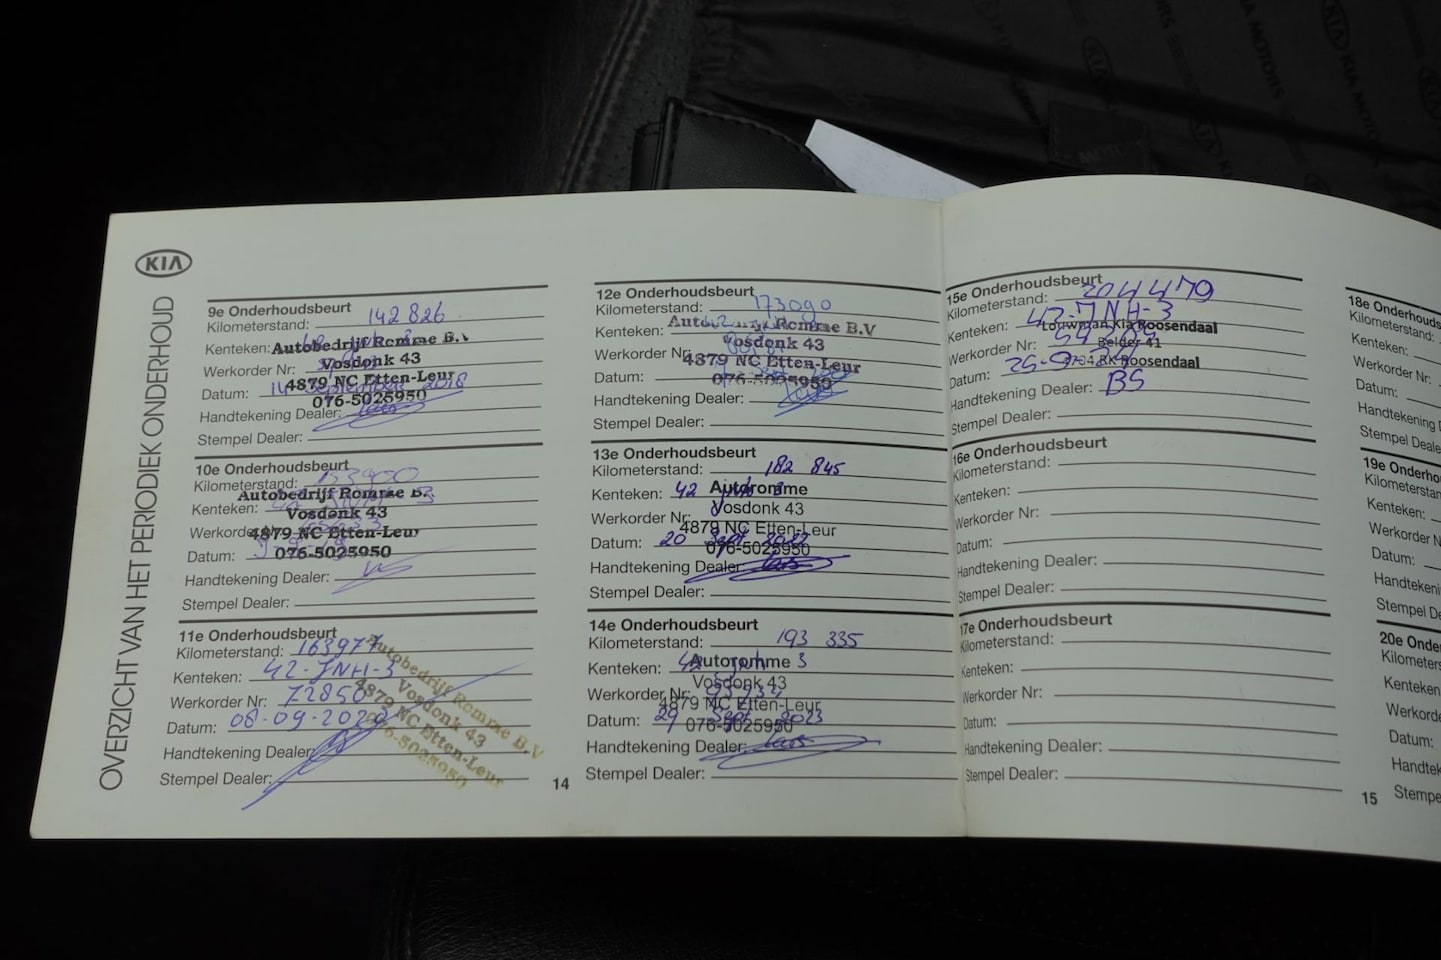 KIA
OVERZICHT VAN HET PERIODIEK ONDERHOUD
9e Onderhoudsbeurt
Kilometerstand: 142826
Kenteken:
Autobedrijf Romme B.V
Werkorder Nr:
Vosdonk 43
4879 NC Etten-Leur
Datum: 14 September 2018
076-5025950
Handtekening Dealer:
Stempel Dealer:
10e Onderhoudsbeurt
Kilometerstand: 153900
Autobedrijf Romme B.
Kenteken:
Vosdonk 43
Werkorder
4879 NC Etten-Leur
Datum:
076-5025950
Handtekening Dealer:
Stempel Dealer:
11e Onderhoudsbeurt
Kilometerstand: 163977
Kenteken: 42-JNH-3
Werkorder Nr: 72850
Datum: 08-09-2020
Handtekening Dealer:
Stempel Dealer:
Autobedrijf Romme B.V
Vosdonk 43
4879 NC Etten-Leur
076-5025950
14
12e Onderhoudsbeurt
Kilometerstand: 173090
Kenteken:
Romme B.V
Vosdonk 43
Werkorder Nr:
4879 NC Etten-Leur
Datum:
076-5025950
Handtekening Dealer:
Stempel Dealer:
13e Onderhoudsbeurt
Kilometerstand: 182 845
Kenteken: 42 JNH 3
Autoromme
Vosdonk 43
Werkorder Nr:
4879 NC Etten-Leur
Datum: 20 Sept 2022
076-5025950
Handtekening Dealer:
Stempel Dealer:
14e Onderhoudsbeurt
Kilometerstand: 193 335
Kenteken: 42 JNH 3
Autoromme
Vosdonk 43
Werkorder Nr:
4879 NC Etten-Leur
Datum: 29 Sept 2023
076-5025950
Handtekening Dealer:
Stempel Dealer:
15e Onderhoudsbeurt
Kilometerstand: 204479
Kenteken: 42-JNH-3
Louwman Kia Roosendaal
Werkorder Nr:
Belder 41
4704 RK Roosendaal
Datum:
Handtekening Dealer: BS
Stempel Dealer:
16e Onderhoudsbeurt
Kilometerstand:
Kenteken:
Werkorder Nr:
Datum:
Handtekening Dealer:
Stempel Dealer:
17e Onderhoudsbeurt
Kilometerstand:
Kenteken:
Werkorder Nr:
Datum:
Handtekening Dealer:
Stempel Dealer:
15
18e Onderhouds
Kilometerstand:
Kenteken:
Werkorder Nr:
Datum:
Handtekening D
Stempel Deale
19e Onderho
Kilometerstan
Kenteken:
Werkorder N
Datum:
Handtekeni
Stempel De
20e Onde
Kilometers
Kenteken
Werkord
Datum:
Handtek
Stempe
KIA MOTORS